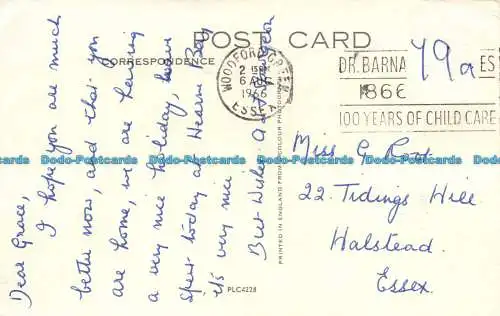 POST CARD
CORRESPONDENCE
Dear Grace,
I hope you are much
better now, and that you
are home, we are having
a very nice holiday, have
spent today at Hearne Bay
it's very nice
Best Wishes
PRINTED IN ENGLAND FROM
COLOUR PHOTOGRAPH
WOODFORD GREEN
2 15PM
6 AUG
1966
ESSEX
DR. BARNA
ES
1866
100 YEARS OF CHILD CARE
79a
Miss G. Root
22. Tidings Hill
Halstead.
Essex.
PLC4228
Dodo-Postcards.com Dodo-Postcards.com Dodo-Postcards.com Dodo-Postcards.com